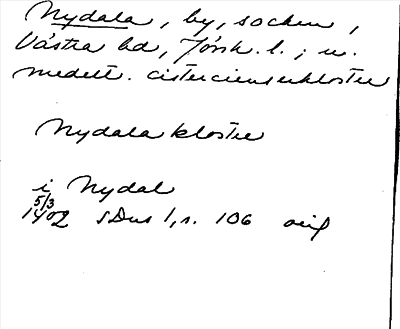 Nydala, by, socken,
Västra hd, Jönk. l.; m.
medelt. cistercienserkloster
Nydala kloster
i Nydal
5/3
1402 SDns 1, s. 106 orig